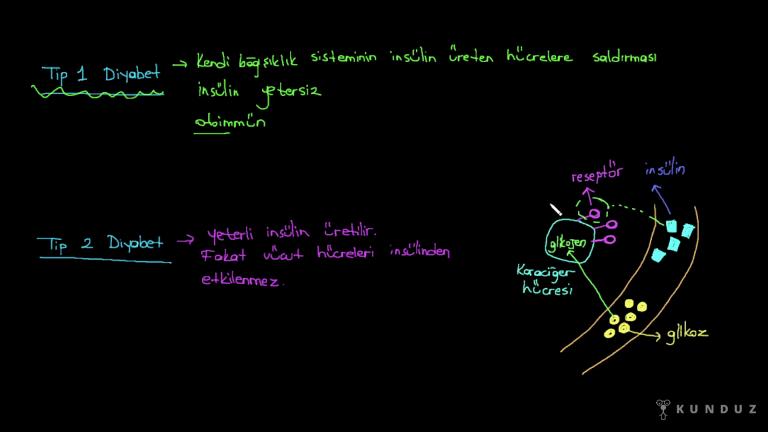 Tip 1 Diyabet → Kendi bağışıklık sisteminin insülin üreten hücrelere saldırması
insülin yetersiz
otoimmün
reseptör
insülin
Tip 2 Diyabet → yeterli insülin üretilir.
Fakat vücut hücreleri insülinden
etkilenmez.
glikojen
Karaciğer
hücresi
glikoz
KUNDUZ